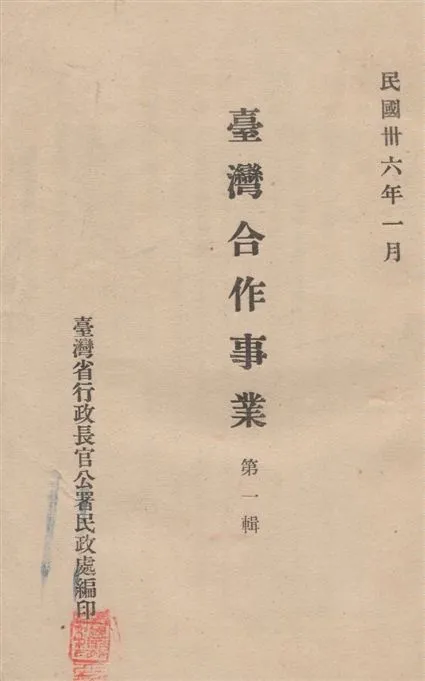 民國卅六年一月
臺灣合作事業 第一輯
臺灣省行政長官公署民政處編印